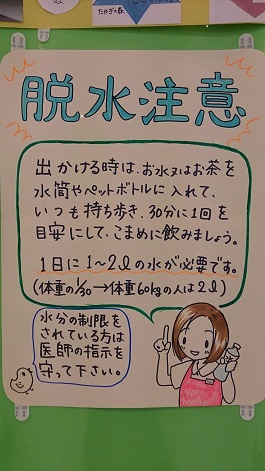 脱水注意
出かける時は、お水又はお茶を
水筒やペットボトルに入れて、
いつも持ち歩き、30分に1回を
目安にして、こまめに飲みましょう。
1日に1〜2ℓの水が必要です。
(体重の1/30→体重60kgの人は2ℓ)
水分の制限を
されている方は
医師の指示を
守って下さい。